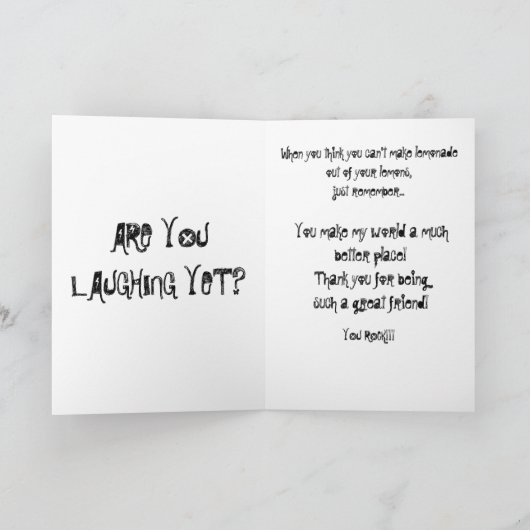 Are You
Laughing Yet?
When you think you can't make lemonade
out of your lemons,
just remember...
You make my world a much
better place!
Thank you for being
such a great friend!
You Rock!!!